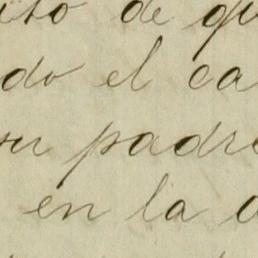 ito de qu
do el ca
su padre
en la